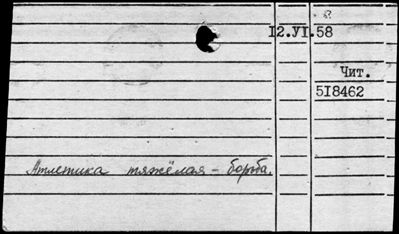 12.УI.58
Чит.
5I8462
Атлетика тяжёлая - борьба.